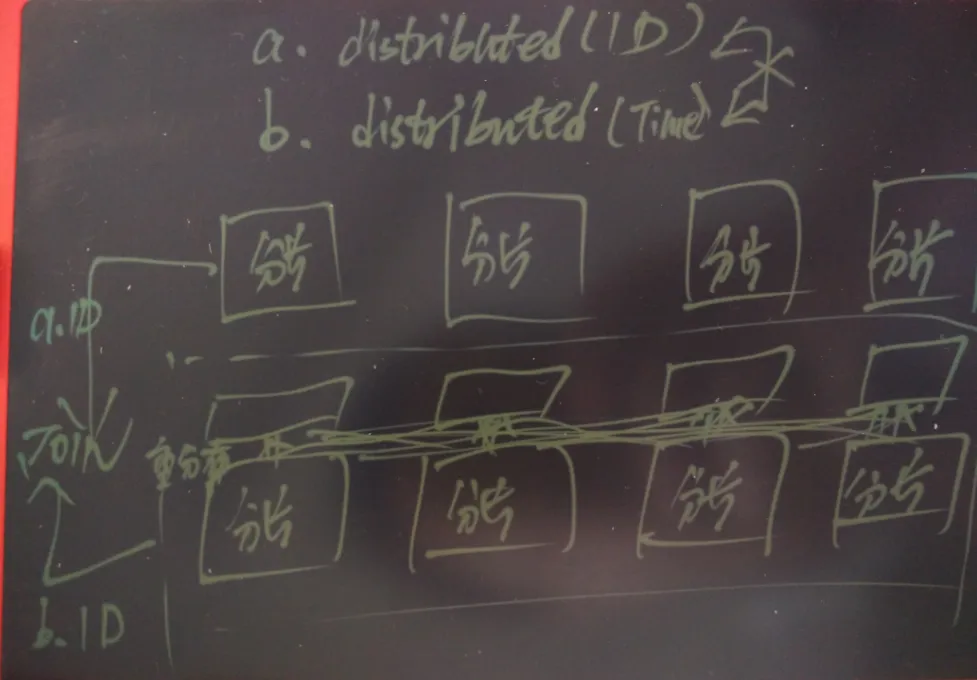 a. distributed(ID)
b. distributed(Time)
分片 分片 分片 分片
a.ID
JOIN
重分布
分片 分片 分片 分片
b.ID